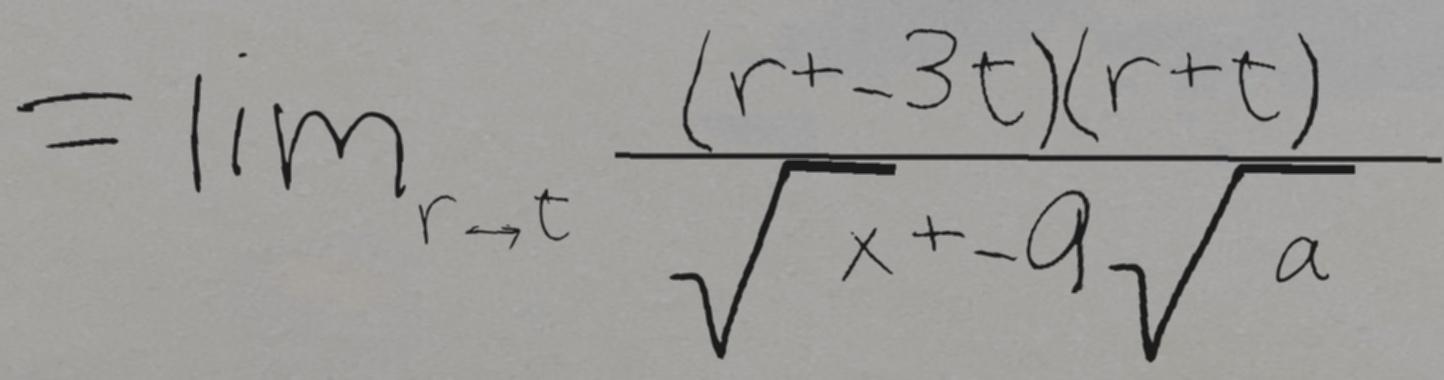 = lim_{r→t} \frac{(r+-3t)(r+t)}{\sqrt{x}+-9\sqrt{a}}